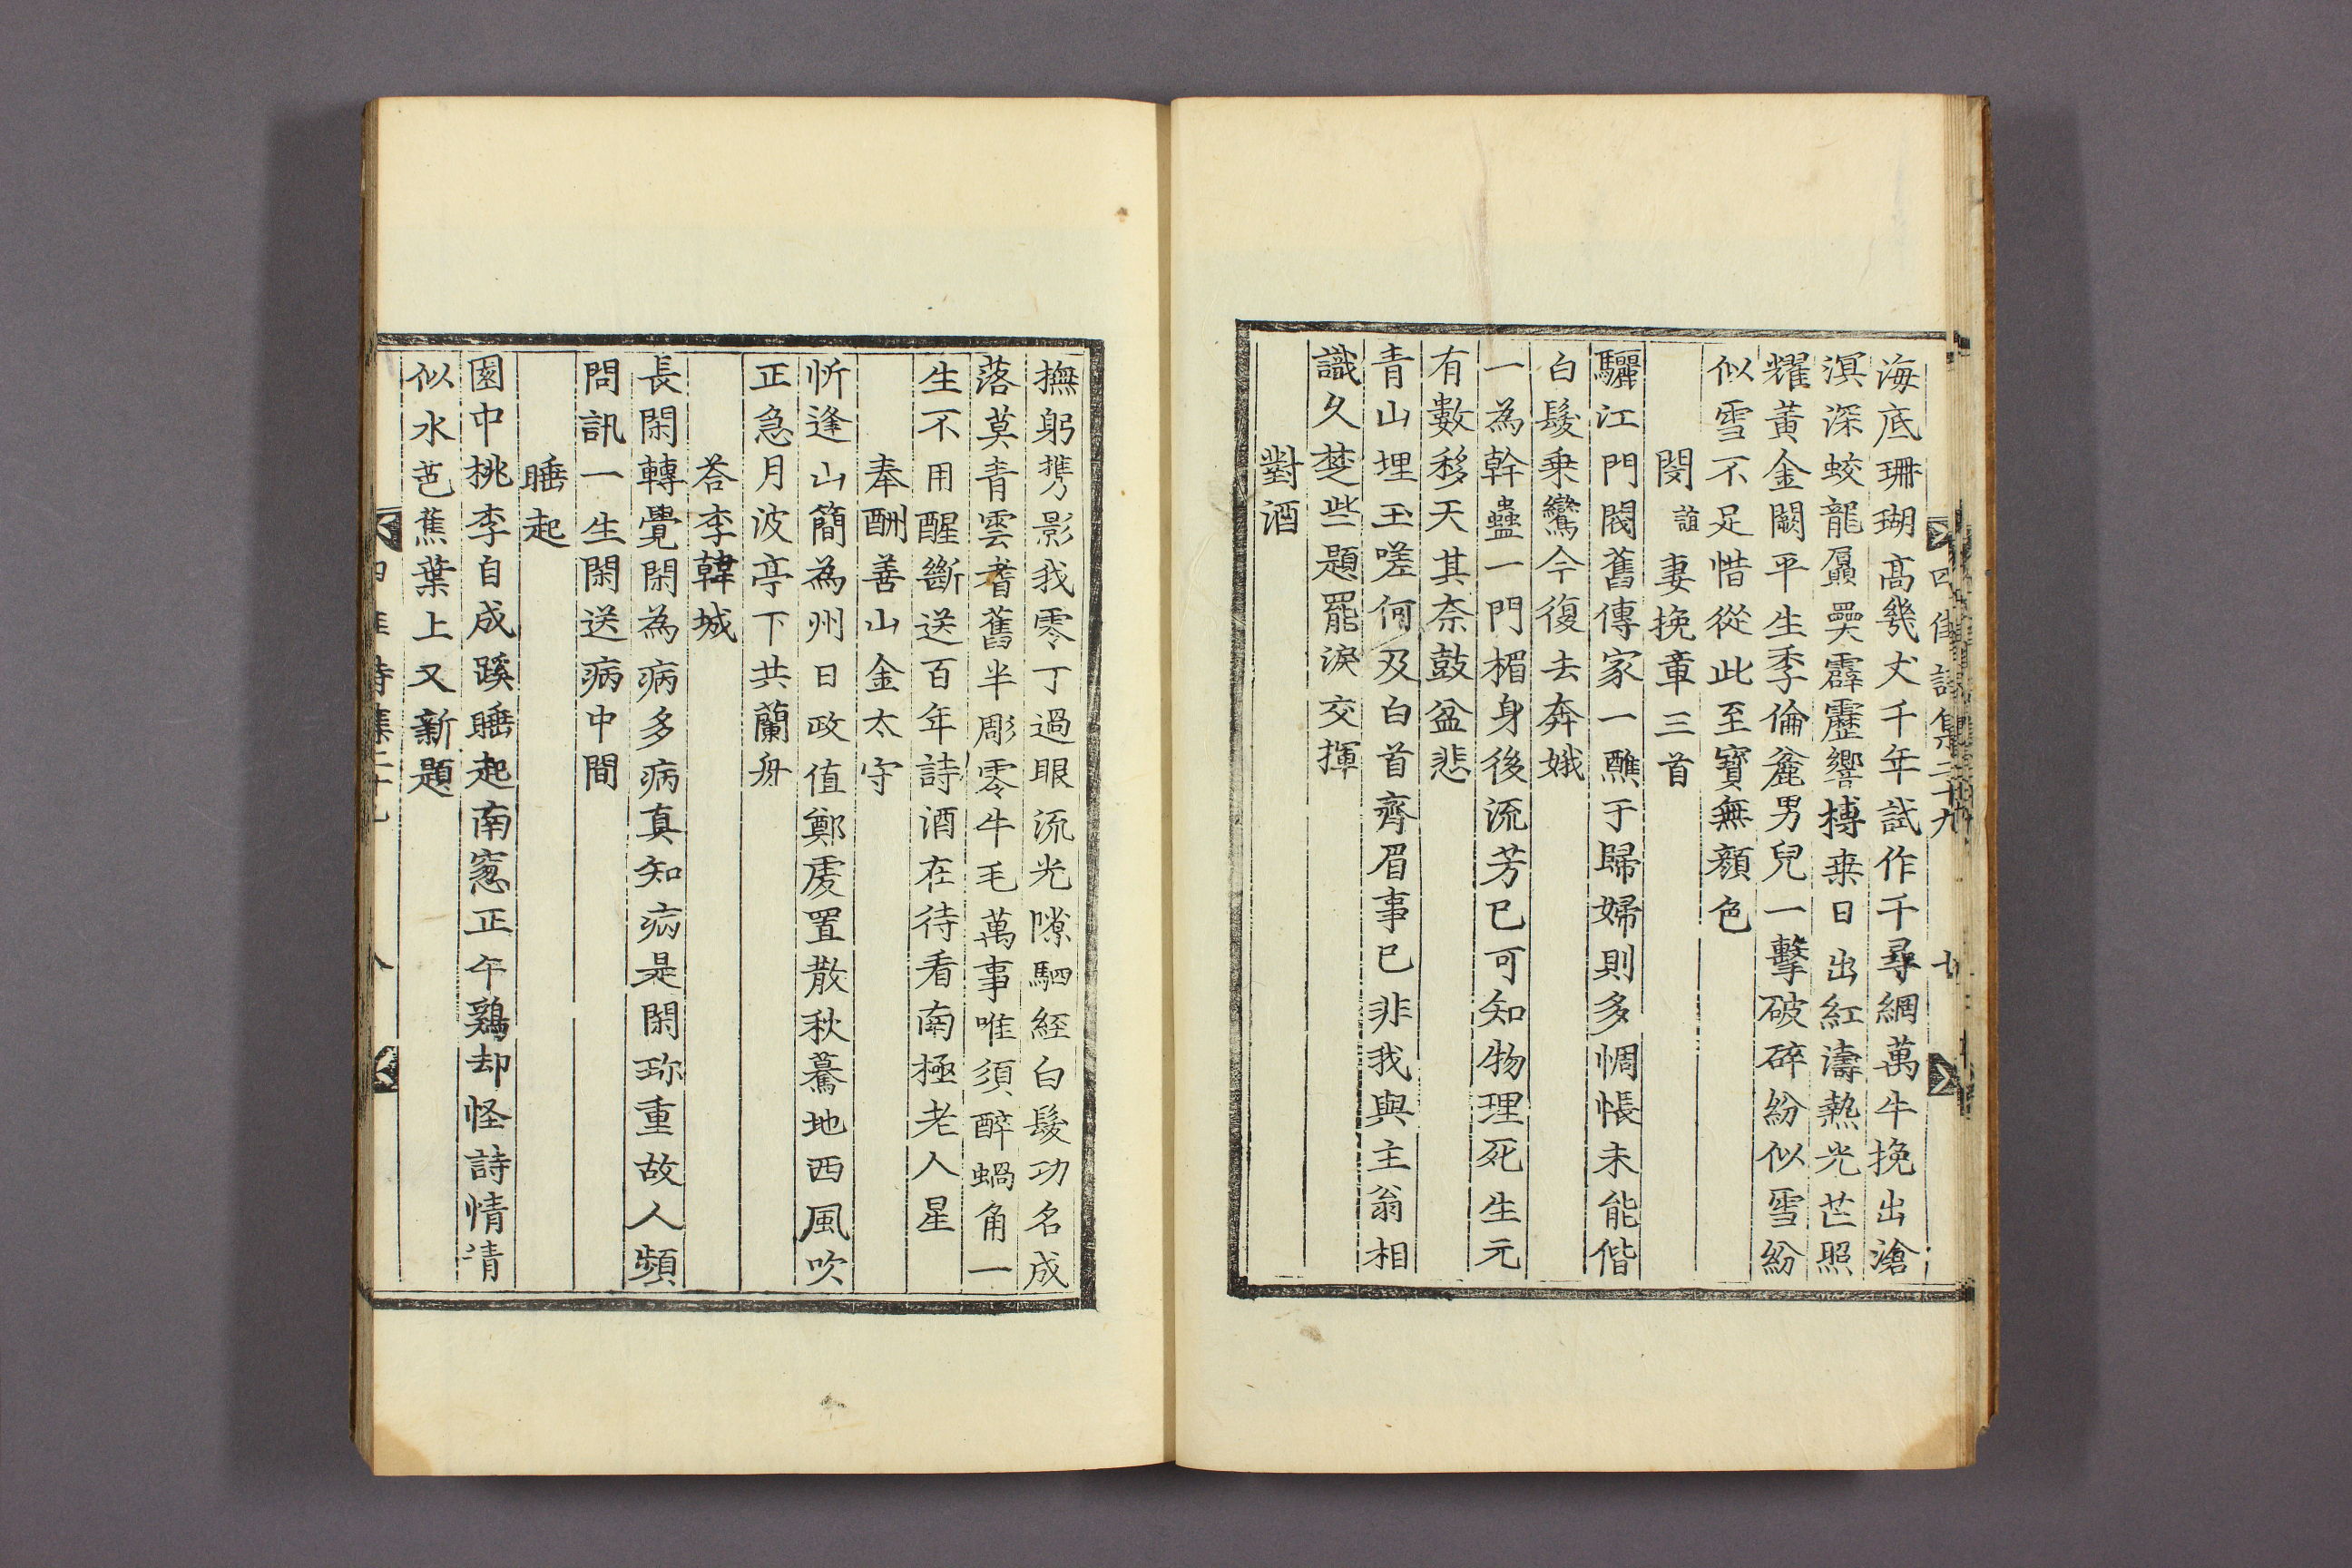 海底珊瑚高幾丈千年試作千尋網萬牛挽出滄
溟深蛟龍贔奰霹靂響榑桒日出紅濤熱光芒照
耀黃金闕平生季倫麄男兒一擊破碎紛似雪紛
似雪不足惜從此至寶無顏色
閔誼妻挽章三首
驪江門閥舊傳家一醮于歸婦則多惆悵未能偕
白髮乗鸞今復去奔娥
一為幹蠱一門楣身後流芳已可知物理死生元
有數移天其奈鼓盆悲
青山埋玉嗟何及白首齊眉事已非我與主翁相
識久楚些題罷淚交揮
對酒
四佳詩集二十九
撫躬攜影我零丁過眼流光隙駟經白髮功名成
落莫青雲耆舊半彫零牛毛萬事唯須醉蝸角一
生不用醒斷送百年詩酒在待看南極老人星
奉酬善山金太守
忻逢山簡為州日政值鄭虔置散秋驀地西風吹
正急月波亭下共蘭舟
荅李韓城
長閑轉覺閑為病多病真知病是閑珎重故人頻
問訊一生閑送病中間
睡起
園中桃李自成蹊睡起南窓正午鷄却怪詩情清
似水芭蕉葉上又新題